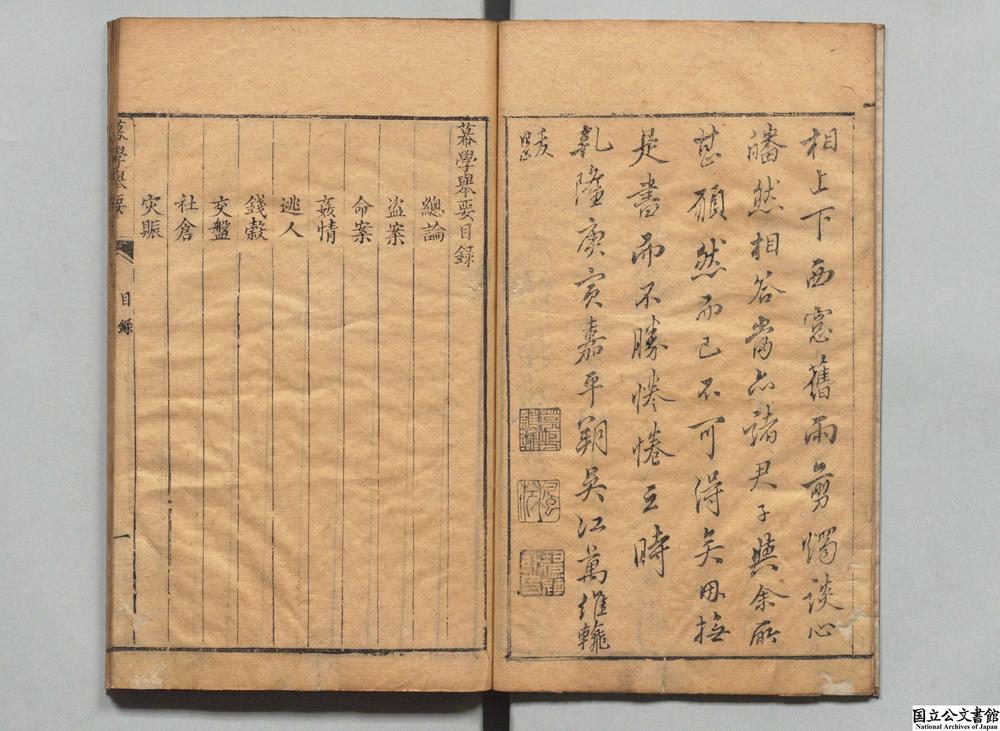 相上下西窓舊雨剪燭談心
皤然相答當亦諸君子與余所
甚願然而已不可得矣因撫
是書而不勝惓惓云時
乾隆庚寅嘉平朔吳江萬維翰
幕學舉要目錄
總論
盜案
命案
姦情
逃人
錢穀
交盤
社倉
灾賑
幕學舉要
目錄
一
国立公文書館
National Archives of Japan